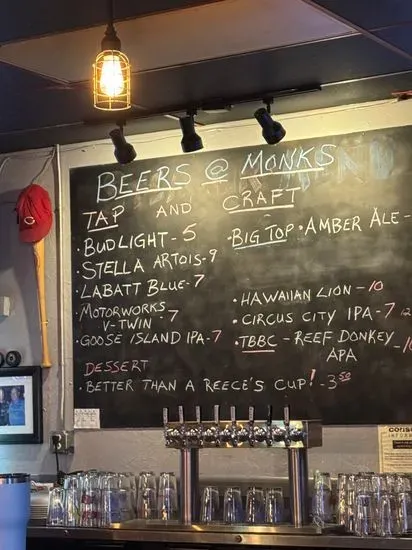 BEERS @ MONKS
TAP AND CRAFT
· BUDLIGHT - 5
· STELLA ARTOIS - 9
· LABATT BLUE - 7
· MOTORWORKS
V-TWIN · 7
· GOOSE ISLAND IPA - 7
· BIG TOP · AMBER ALE -
· HAWAIIAN LION - 10
· CIRCUS CITY IPA - 7
· TBBC - REEF DONKEY - 10
APA
DESSERT
· BETTER THAN A REECE'S CUP! - 3.50